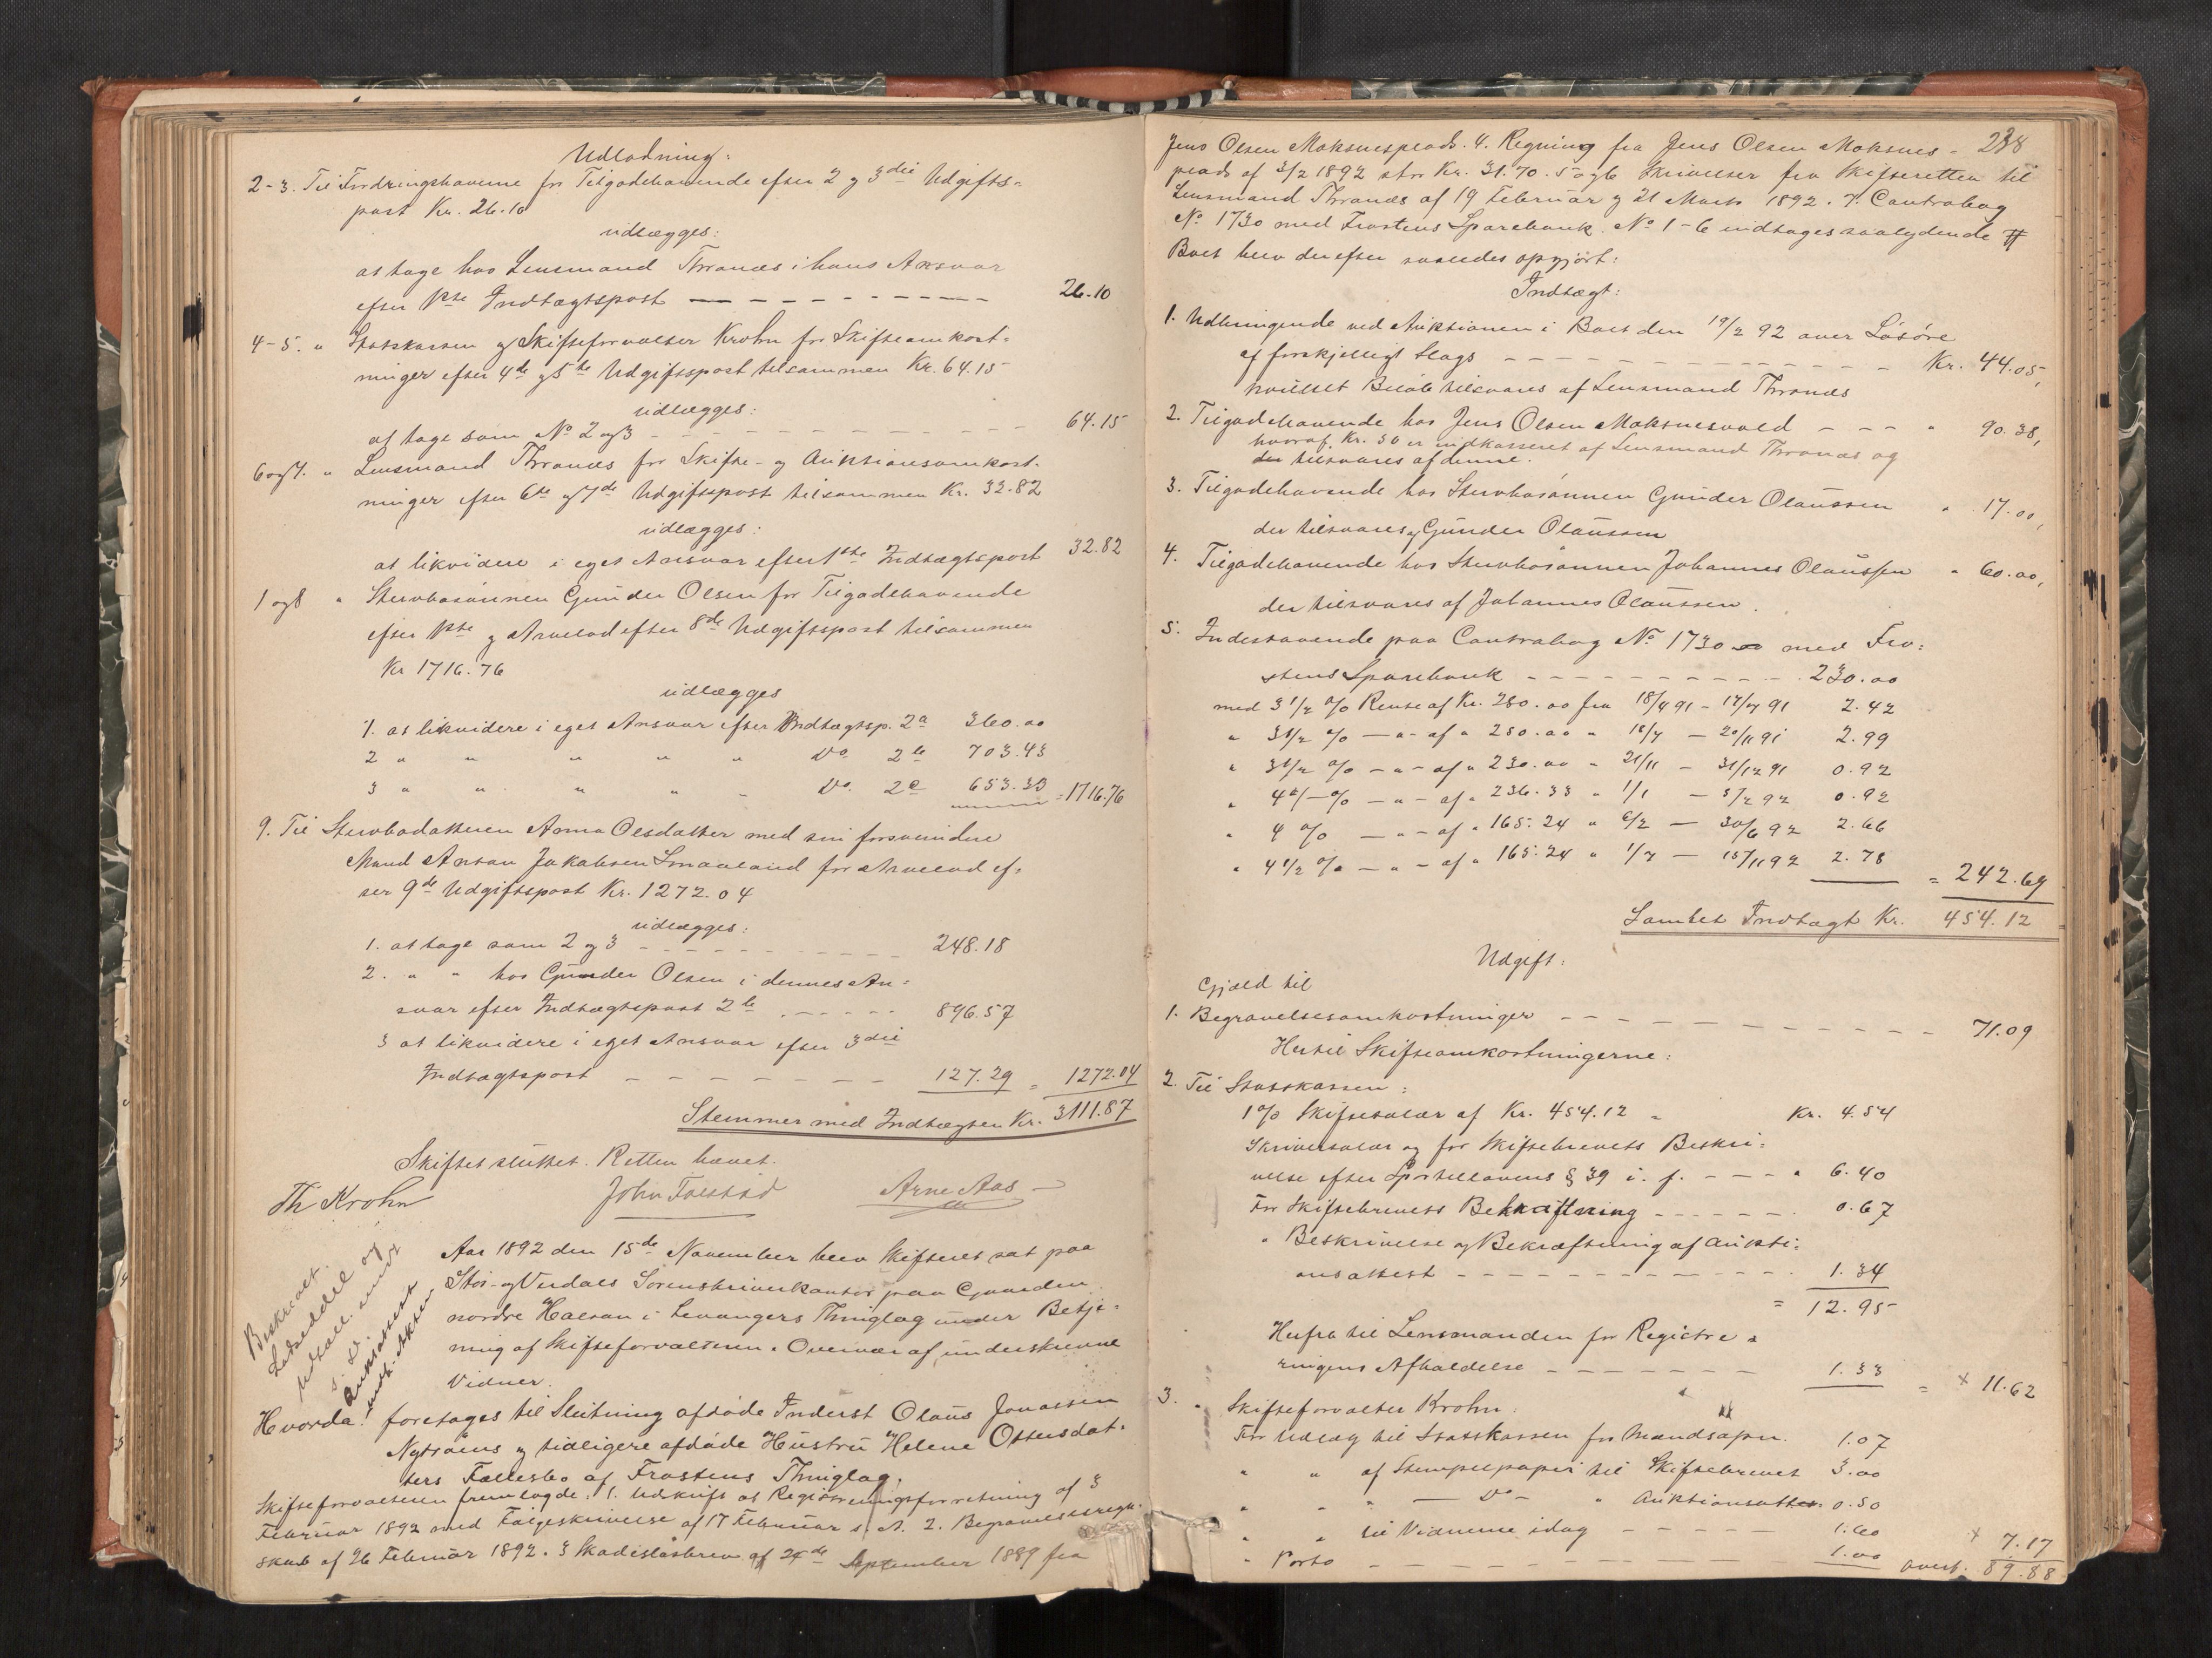 Udlodning:
2-3. Til Fordringshaverne for Tilgodehavende efter 2 og 3die Udgifts-
post Kr. 26.10
udlægges:
at tage hos Lensmand Thronæs i hans Ansvar
efter 1ste Indtægtspost — — — 26.10
4-5. " Statskassen og Skifteforvalter Krohn for Skifteomkost-
ninger efter 4de og 5te Udgiftspost tilsammen Kr. 64.15
udlægges:
at tage som No 2 og 3 — — — 64.15
6 og 7. " Lensmand Thronæs for Skifte- og Auktionsomkost-
ninger efter 6te og 7de Udgiftspost tilsammen Kr. 32.82
udlægges:
at likvidere i eget Ansvar efter 1ste Indtægtspost 32.82
1 og 8 " Stervbosønnen Gunder Olsen for Tilgodehavende
efter 1ste og Arvelod efter 8de Udgiftspost tilsammen
Kr 1716.76
udlægges
1. at likvidere i eget Ansvar efter Indtægtsp. 2a 360.00
2 " " " " " Do. 2b 703.43
3 " " " " " Do. 2c 653.33 = 1716.76
9. Til Stervbodatteren Anna Olsdatter med sin forsvindne
Mand Anton Jakobsen Smaaland for Arvelod ef-
ter 9de Udgiftspost Kr. 1272.04
udlægges:
1. at tage som 2 og 3 — — — 248.18
2. " " hos Gunder Olsen i dennes An-
svar efter Indtægtspost 2b — — — 896.57
3 at likvidere i eget Ansvar efter 3die
Indtægtspost — — — 127.29 = 1272.04
Stemmer med Indtægten Kr. 3111.87
Skiftet sluttet. Retten hævet.
Th Krohn John Folstad Arne Aas
Beskrevet.
Lodseddel og
s. D.
Auktionsattest
Aar 1892 den 15de November blev Skifteret sat paa
Stør- og Verdals Sorenskriverkontor paa Gaarden
nordre Halsan i Levangers Thinglag under Betje-
ning af Skifteforvalteren i Overvær af underskrevne
Vidner.
Hvorda! foretages til Slutning afdøde Inderst Olaus Jonassen
Nytrøens og tidligere afdøde Hustru Helene Ottersdat-
ters Fællesbo af Frostens Thinglag.
Skifteforvalteren fremlagde: 1. Udskrift af Registreringsforretning af 3
Februar 1892 med Følgeskrivelse af 17 Februar s. A. 2. Begravelsesregn-
skab af 26 Februar 1892. 3 Skadesløsbrev af 24de September 1889 fra
238
Jens Olsen Moksnesplads. 4. Regning fra Jens Olsen Moksnes-
plads af 3/2 1892 stor Kr. 31.70. 5 og 6 Skrivelser fra Skifteretten til
Lensmand Thronæs af 19 Februar og 21 Marts 1892. 7. Contrabog
No 1730 med Frostens Sparebank. No 1-6 indtages saalydende #
Boet blev derefter saaledes opgjort:
Indtægt:
1. Udbringende ved Auktionen i Boet den 19/2 92 over Løsøre
af forskjelligt Slags — — — Kr. 44.05,
hvilket Beløb tilsvares af Lensmand Thronæs
2. Tilgodehavende hos Jens Olsen Moksnesvald — — — " 90.38,
hvoraf Kr. 30 er indkasseret af Lensmand Thronæs og
der tilsvares af denne.
3. Tilgodehavende hos Stervbosønnen Gunder Olaussen " 17.00,
der tilsvares af Gunder Olaussen
4. Tilgodehavende hos Stervbosønnen Johannes Olaussen " 60.00,
der tilsvares af Johannes Olaussen.
5. Indestaaende paa Contrabog No 1730 med Fro-
stens Sparebank — — — 230.00
med 3 1/2 % Rente af Kr. 280.00 fra 18/4 91 - 17/7 91 2.42
" 3 1/2 % — " — af " 250.00 " 18/7 — 20/11 91 2.99
" 3 1/2 % — " — af " 230.00 " 21/11 — 31/12 91 0.92
" 4 % — " — af " 236.33 " 1/1 — 5/2 92 0.92
" 4 % — " — af " 165.24 " 6/2 — 30/6 92 2.66
" 4 1/2 % — " — af " 165.24 " 1/7 — 15/11 92 2.78 = 242.69
Samlet Indtægt Kr. 454.12
Udgift:
Gjæld til
1. Begravelsesomkostninger — — — 71.09
Hertil Skifteomkostningerne:
2. Til Statskassen:
1 % Skiftesalær af Kr. 454.12 = Kr. 4.54
Skriversalær og for Skiftebrevets Beskri-
velse efter Sportellovens § 39 i. f. — — — " 6.40
For Skiftebrevets Bekræftning — — — 0.67
" Beskrivelse og Bekræftning af Aukti-
onsattest — — — 1.34
= 12.95
Herfra til Lensmanden for Registre-
ringens Afholdelse — — — 1.33 = x 11.62
3. " Skifteforvalter Krohn:
For Udlæg til Statskassen for Mandsapn. 1.07
" " af Stempelpapir til Skiftebrevet 3.00
" " " — Do — " Auktionsattest 0.50
" " til Vidnerne idag — — — 1.60
" Porto — — — 1.00 x 7.17
overf. 89.88